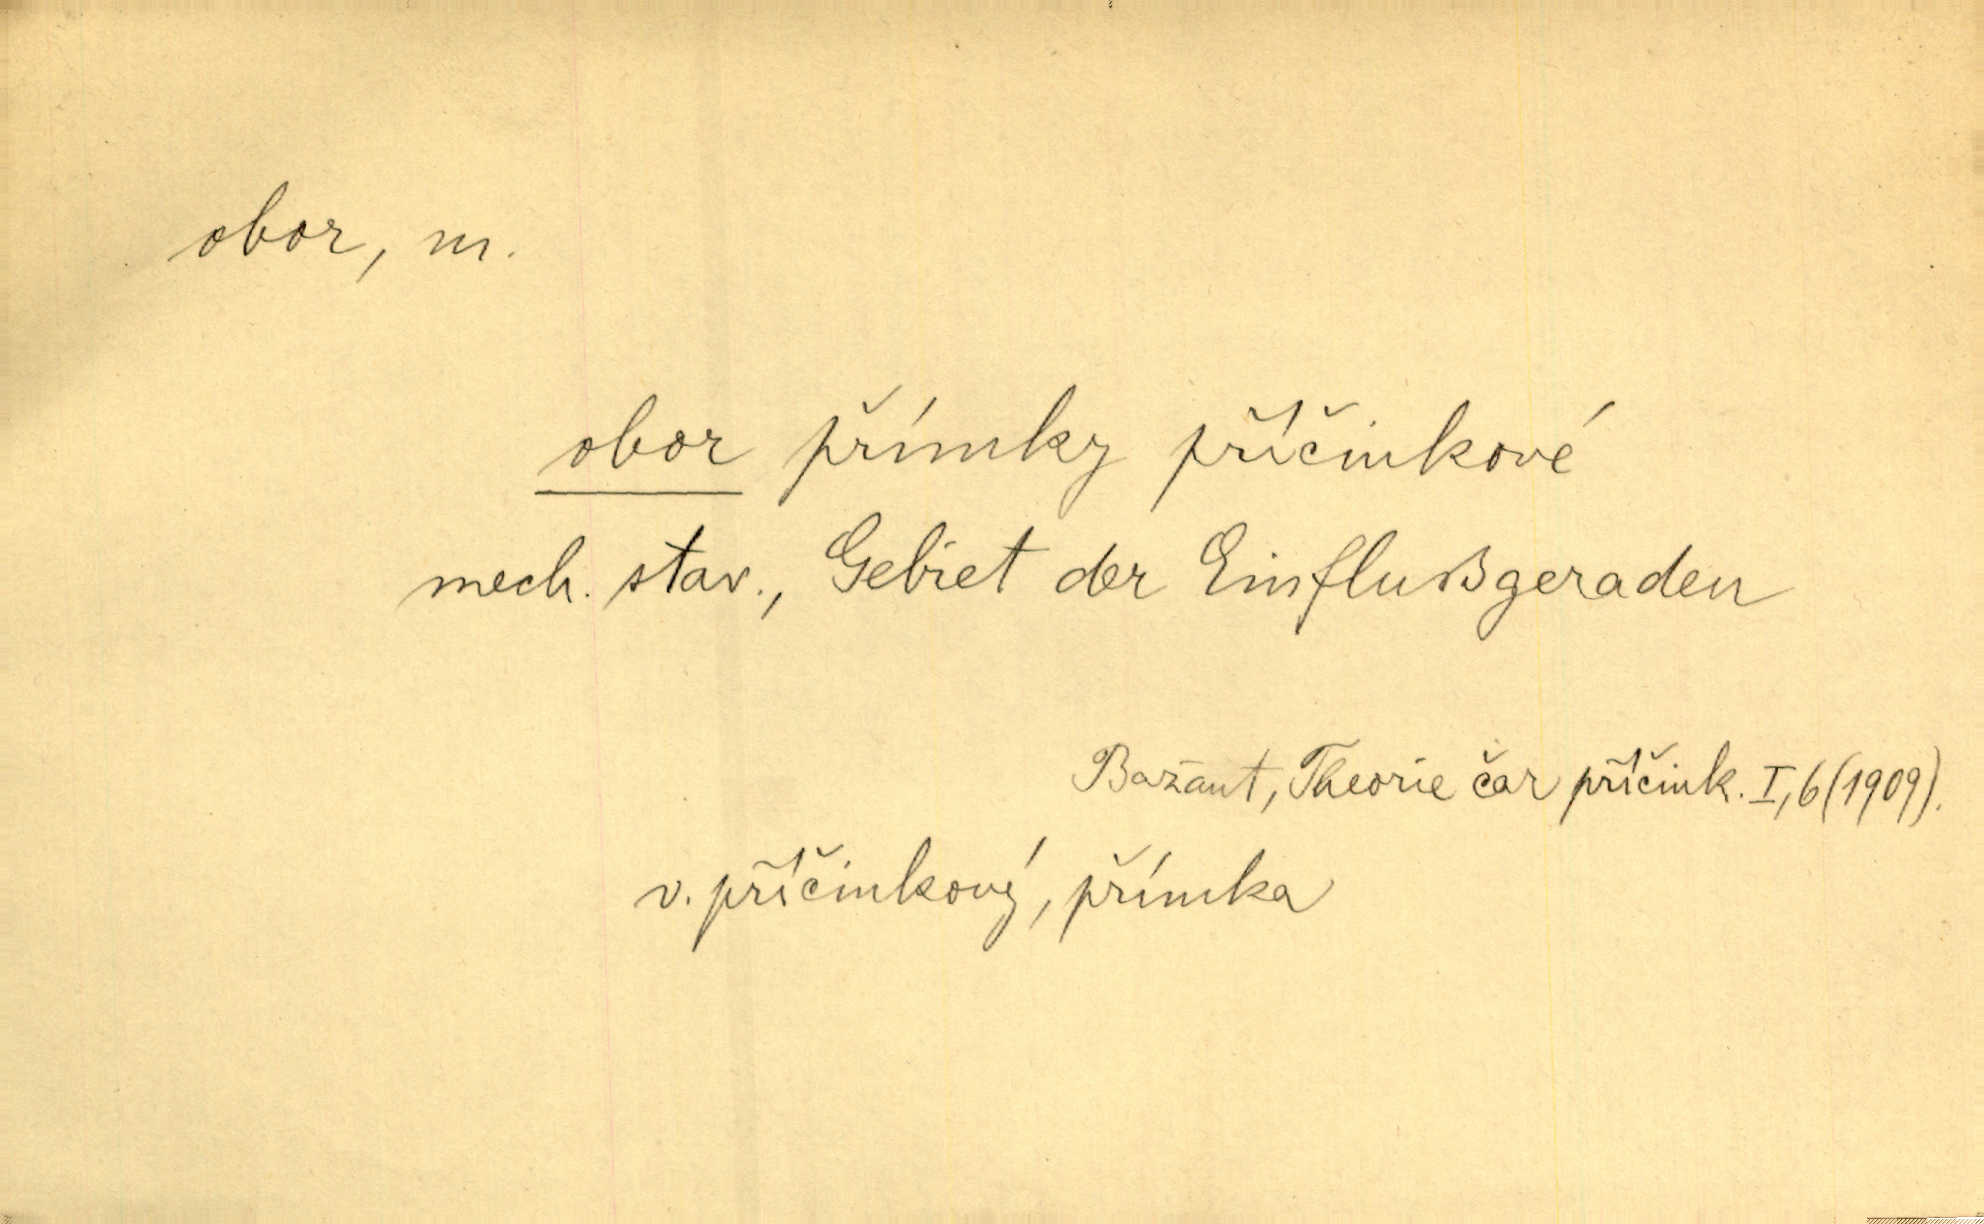 obor, m.
obor přímky příčinkové
mech. stav., Gebiet der Einflußgeraden
Bažant, Theorie čar příčink. I, 6 (1909).
v. příčinkový, přímka